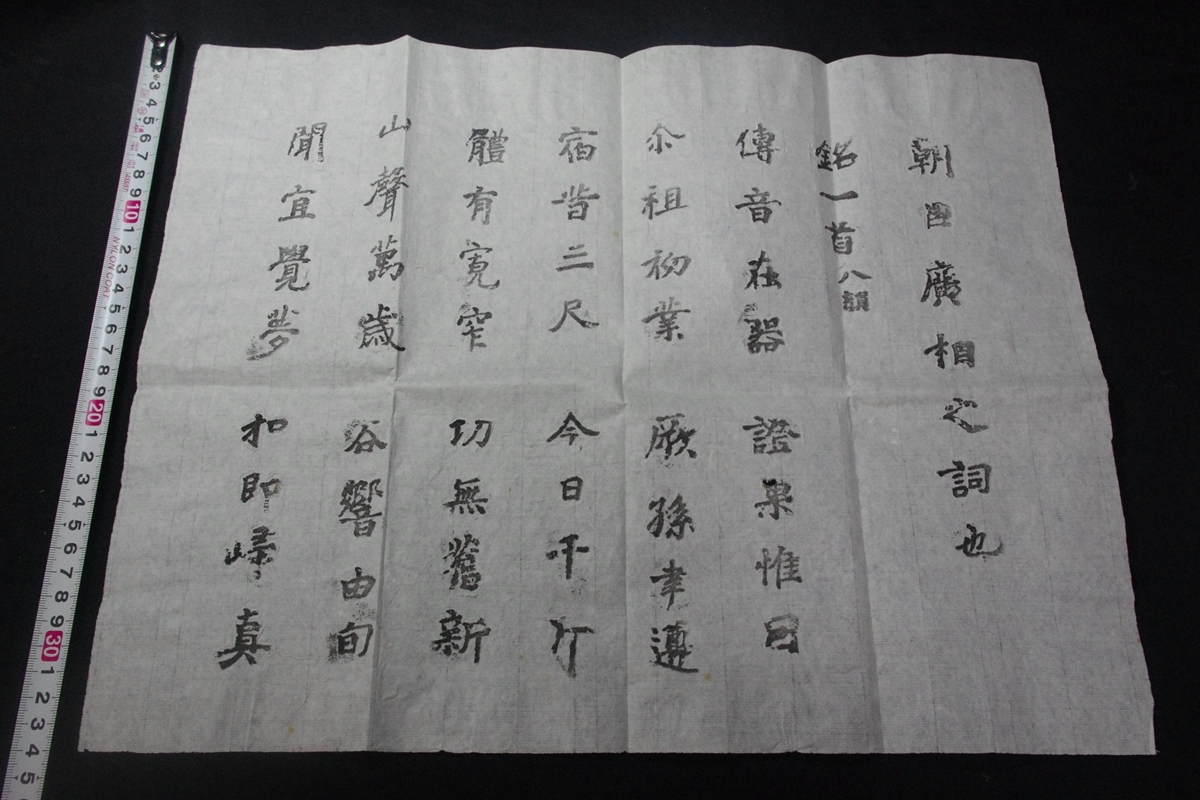 朝臣廣相之詞也
銘一首八韻
傳音在器 證果惟因
尒祖初業 厥孫聿遵
宿昔三尺 今日千斤
體有寬窄 功無舊新
山聲萬歲 谷響由旬
聞宜覺夢 扣即歸真
NYLON COAT